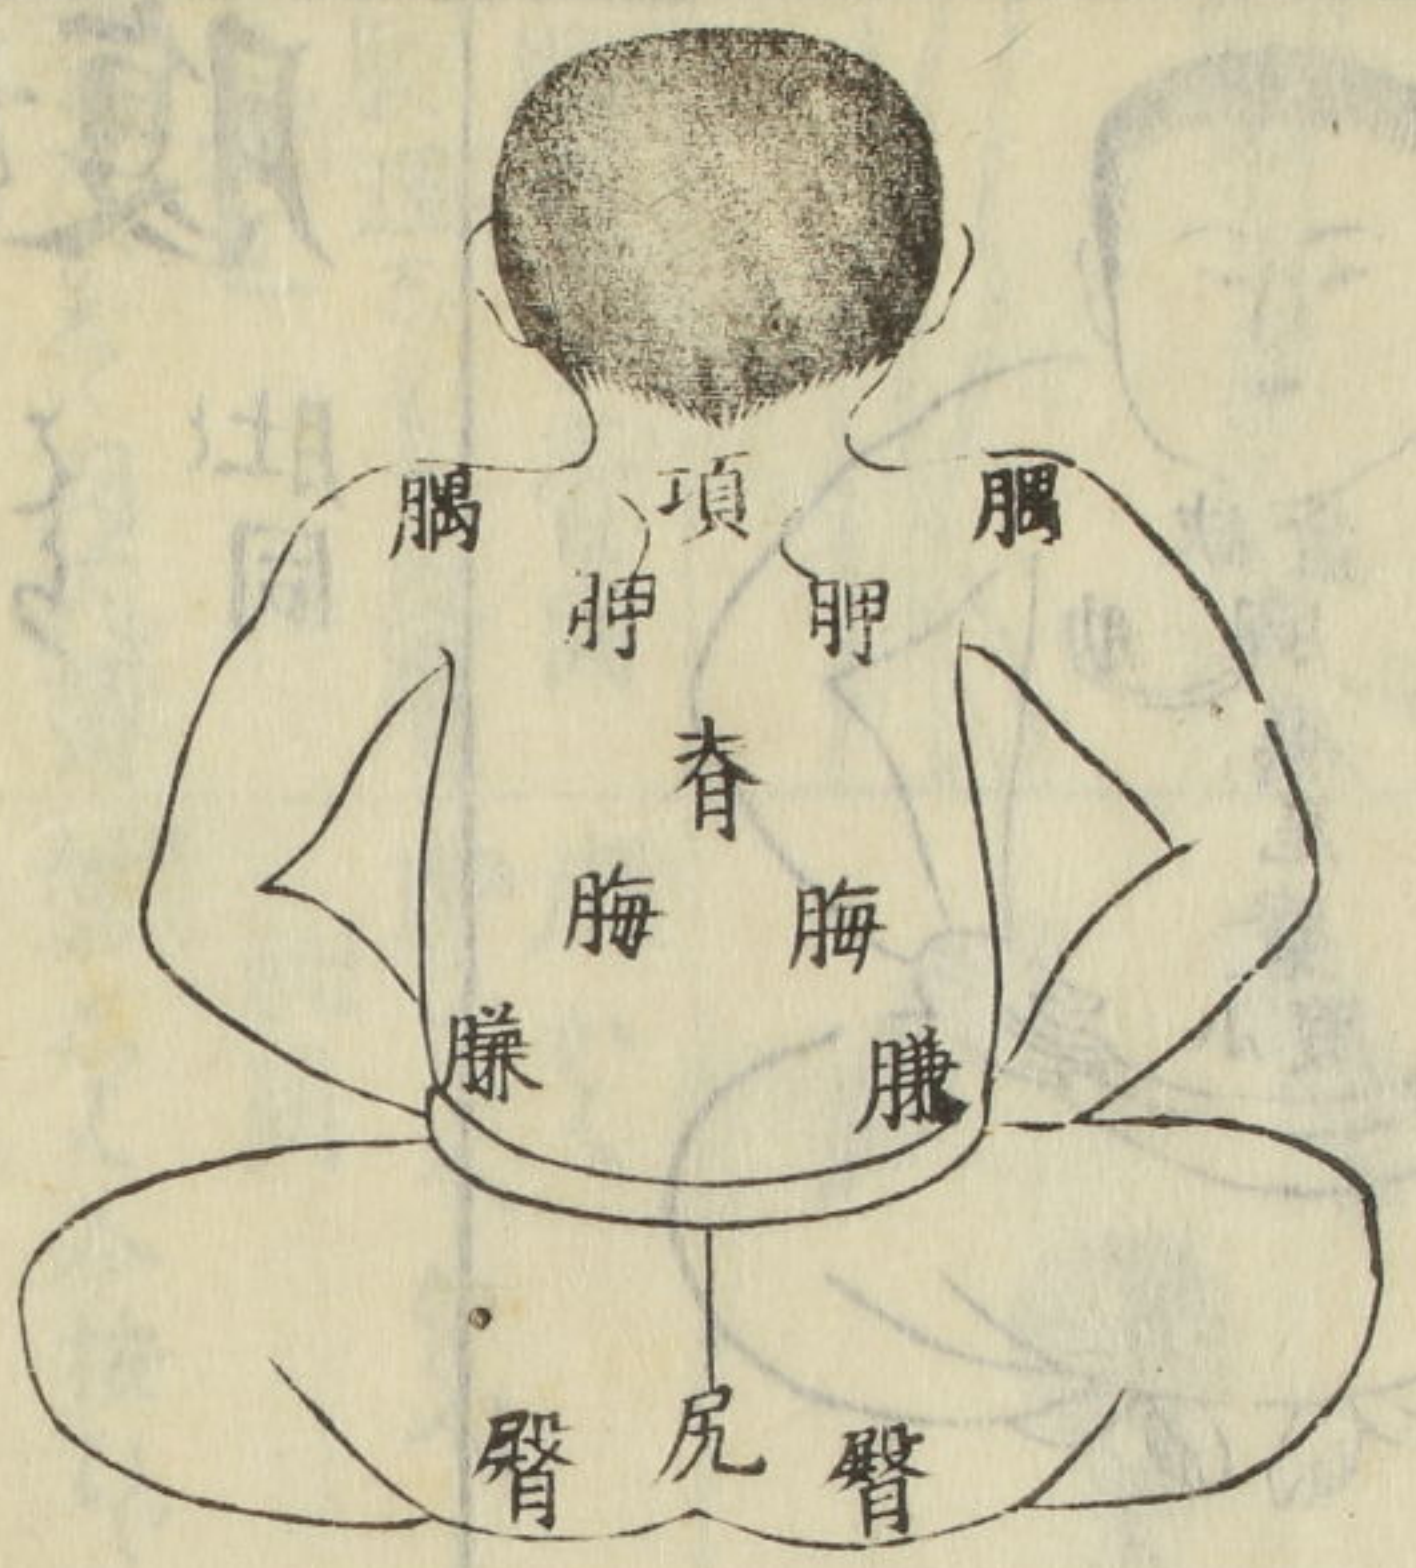 髃 項 髃
胛 胛
脊
脢 脢
膁 膁
臀 尻 臀